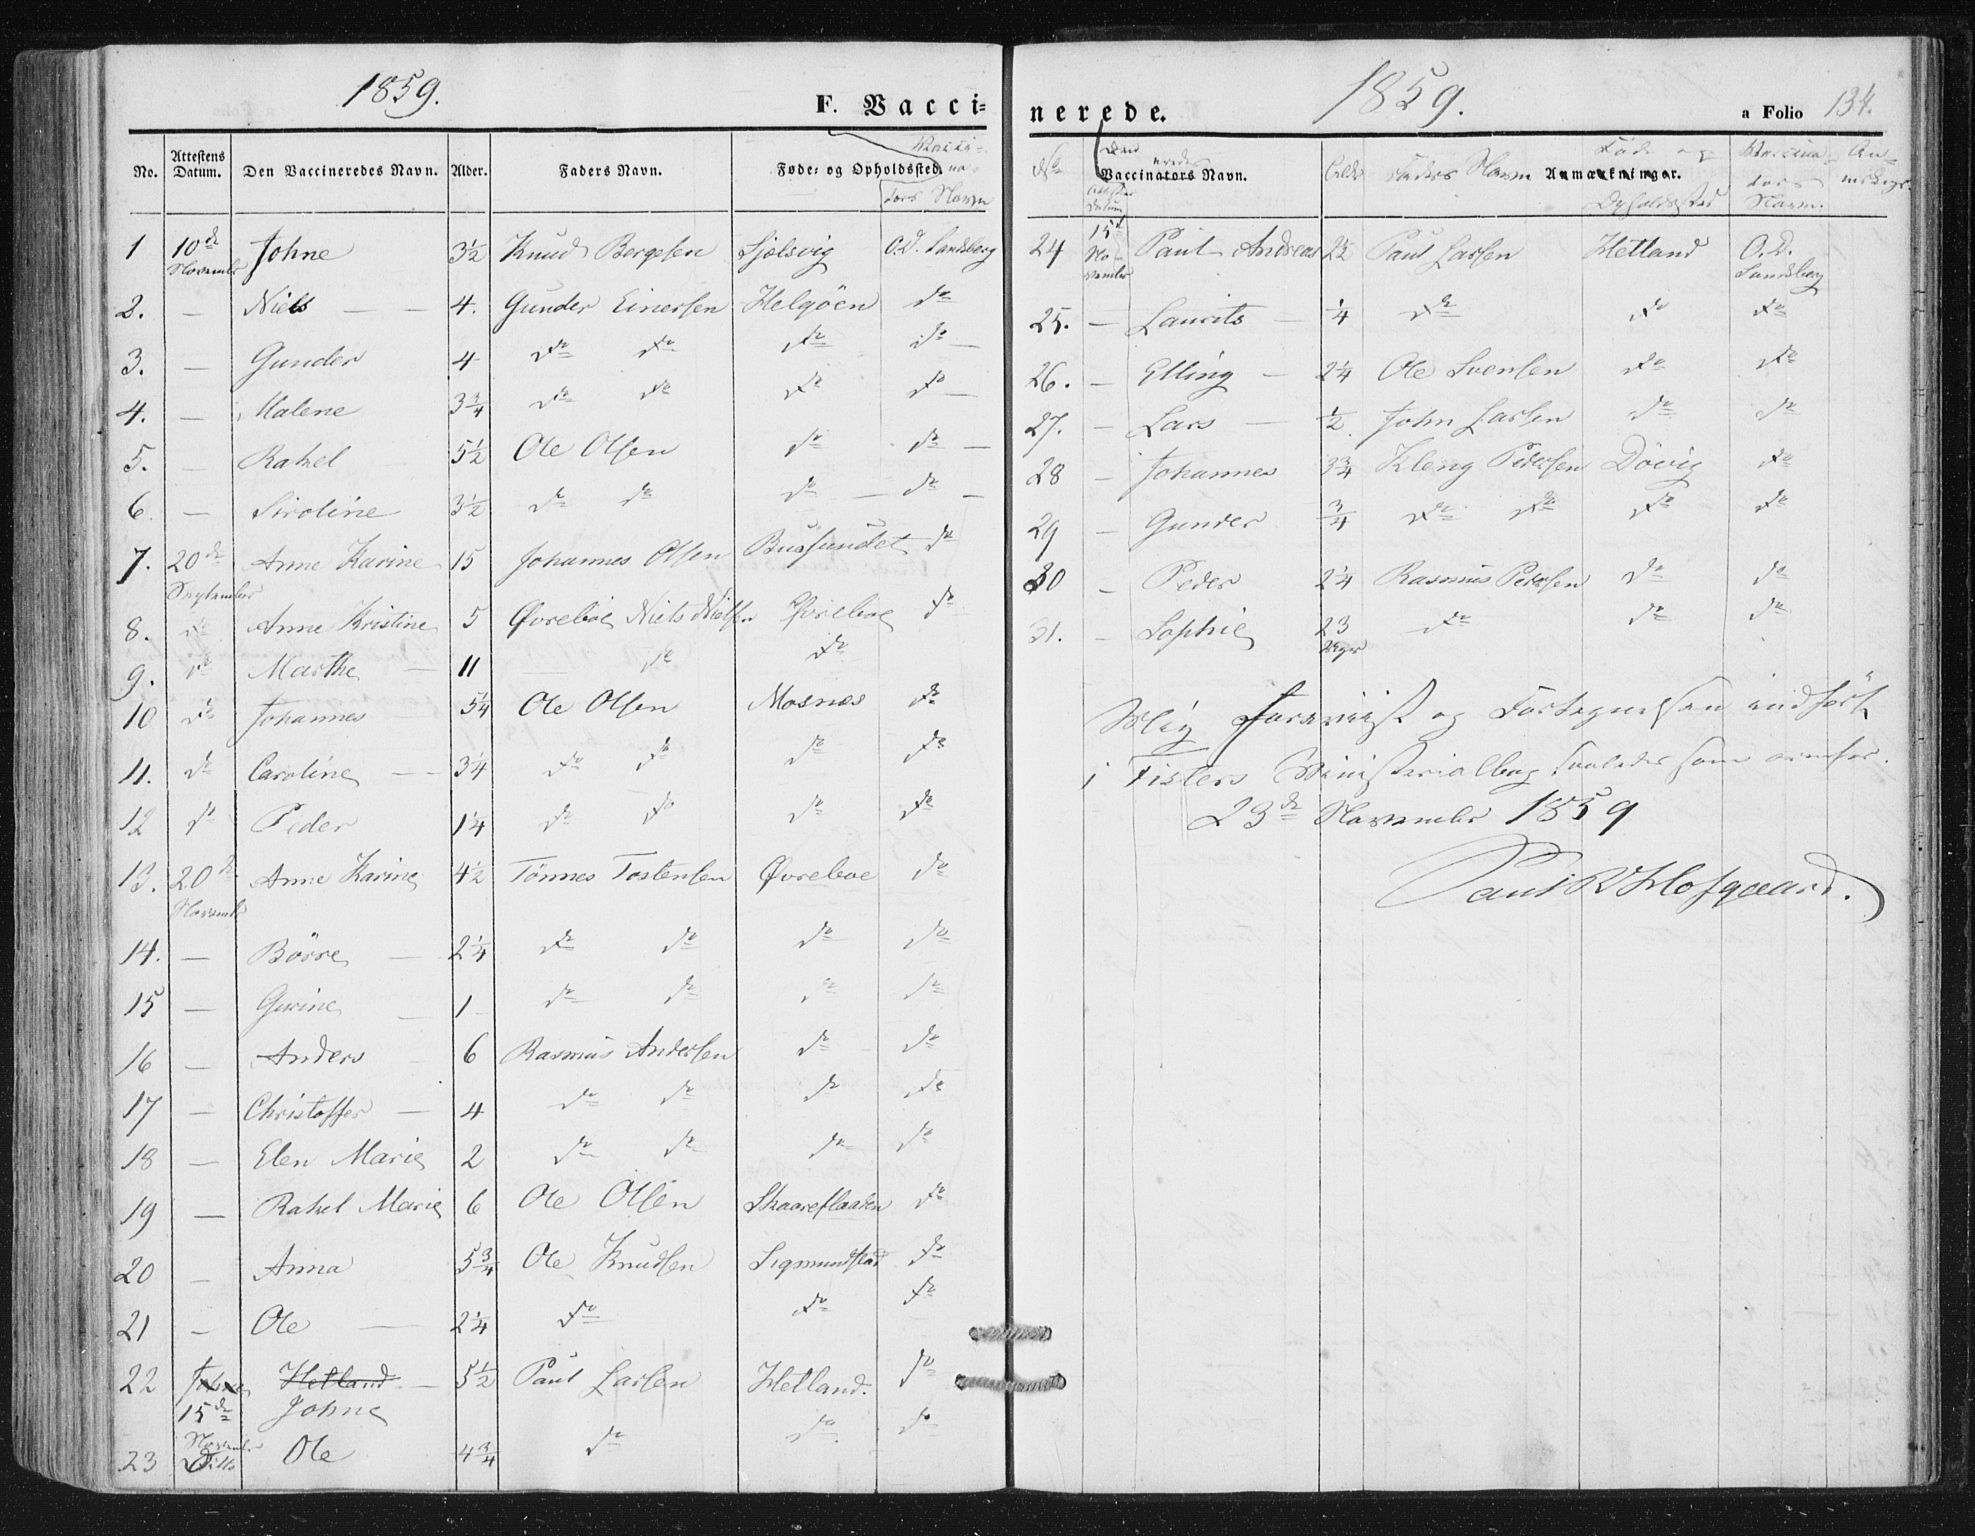 1859.
F. Vacci-
No. Attestens Datum. Den Vaccineredes Navn. Alder. Faders Navn. Føde- og Opholdssted. Vacci-na-tors Navn
1 10de November Johne 3½ Knud Bergesen Sjølsvig O.D. Sandsberg
2. — Niels — — 4. Gunder Einersen Helgöen do
3. — Gunder 4 do do do do —
4. — Malene 3¾ do do do do —
5. — Rakel 5½ Ole Olsen do do —
6 — Siroline 3½ do do do — do —
7. 20de September Anne Karine 15 Johannes Olsen Bussundet do
8. do Anne Kristine 5 Øvreboe Niels Nielsen Øvreboe do
9. do Marthe — 11 do do
10 do Johannes 5¼ Ole Olsen Mosnes do
11. do Caroline — — 3¼ do do do do
12 do Peder 1¼ do do do do
13. 20de November Anne Karine 4½ Tönnes Tostensen Øvreboe do
14. — Börre — 2¼ do do do do
15 — Gurine — 1 do do do do
16 — Anders 6 Rasmus Andersen do do
17 — Christoffer — 4 do do do do
18 — Elen Marie 2 do do do do
19 — Rakel Marie 6 Ole Olsen Skaareflaaten do
20 — Anna 5¾ Ole Knudsen Sigmundstad do
21 — Ole — 2¼ do do do
22 Johne Hetland — 5½ Paul Larsen Hetland. do
15de Johne
November
23 Ditto Ole 4¾ do do do
1859.
nerede.
a Folio 134.
No Attestens Datum Den Vaccineredes Vaccinators Navn. Alder Faders Navn Anmærkninger. Føde og Opholdssted Vaccinators Navn. Anmerkgr.
24 15de November Paul Andreas 2½ Paul Larsen Hetland O.D. Sandsberg
25. — Laurits — ¼ do do do
26. — Elling — 2¼ Ole Svensen do do
27. — Lars — ½ John Larsen do do
28 — Johannes 3¾ Kleng Pedersen Dövig do
29 — Gunder ¾ do do do do
30 — Peder 2¼ Rasmus Pedersen do do
31. — Sophie 23 Uger do do do
Mig foreviist og Fortegnelsen indført
i Fisters Ministerialbog saaledes som ovenfor.
23de November 1859
Paul R Hofgaard.